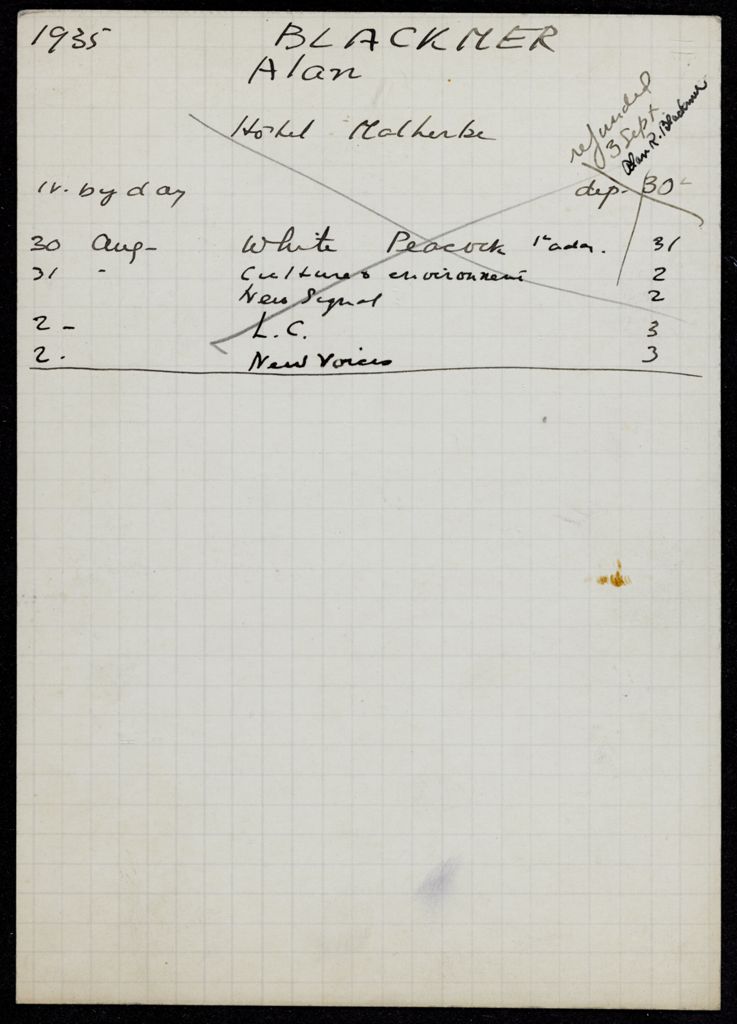 1935 BLACKMER
Alan
Hôtel Malherbe
refunded
3 Sept
Alan R. Blackmer
1v. by day dep. 30
30 Aug - White Peacock 31
31 - Culture & environment 2
New Signal 2
2 - L.C. 3
2. New Voices 3